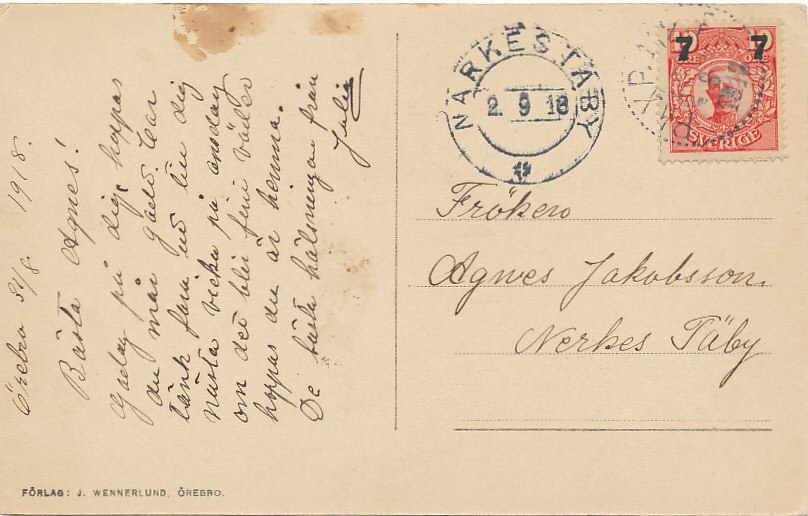 Örebro 31/8 1918.
Bästa Agnes!
på dig, hoppas
du mår godt
tänk fara ut till dig
nästa vecka på onsdag
om det blir fint väder
hoppas du är hemma.
De bästa hälsningar från
Julia
NÄRKESTÄBY
2. 9 18
7 7
SVERIGE
Fröken
Agnes Jakobsson.
Nerkes Täby
FÖRLAG: J. WENNERLUND, ÖREBRO.